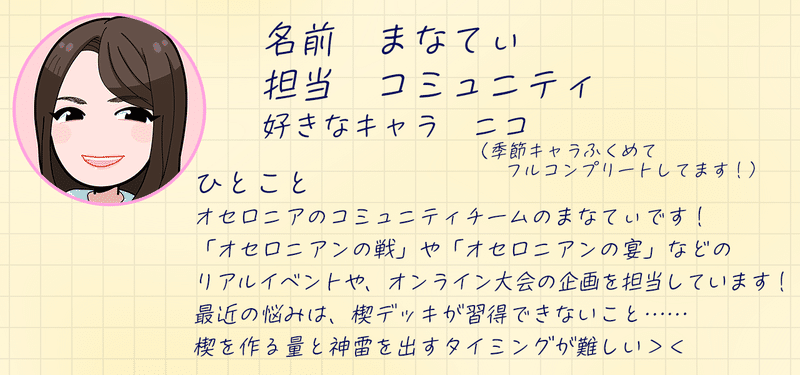 名前　まなてぃ
担当　コミュニティ
好きなキャラ　ニコ
（季節キャラふくめて
フルコンプリートしてます！）
ひとこと
オセロニアのコミュニティチームのまなてぃです！
「オセロニアンの戦」や「オセロニアンの宴」などの
リアルイベントや、オンライン大会の企画を担当しています！
最近の悩みは、楔デッキが習得できないこと……
楔を作る量と神雷を出すタイミングが難しい＞＜